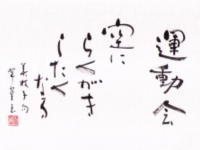 運動会
空に
らくがき
したく
なる